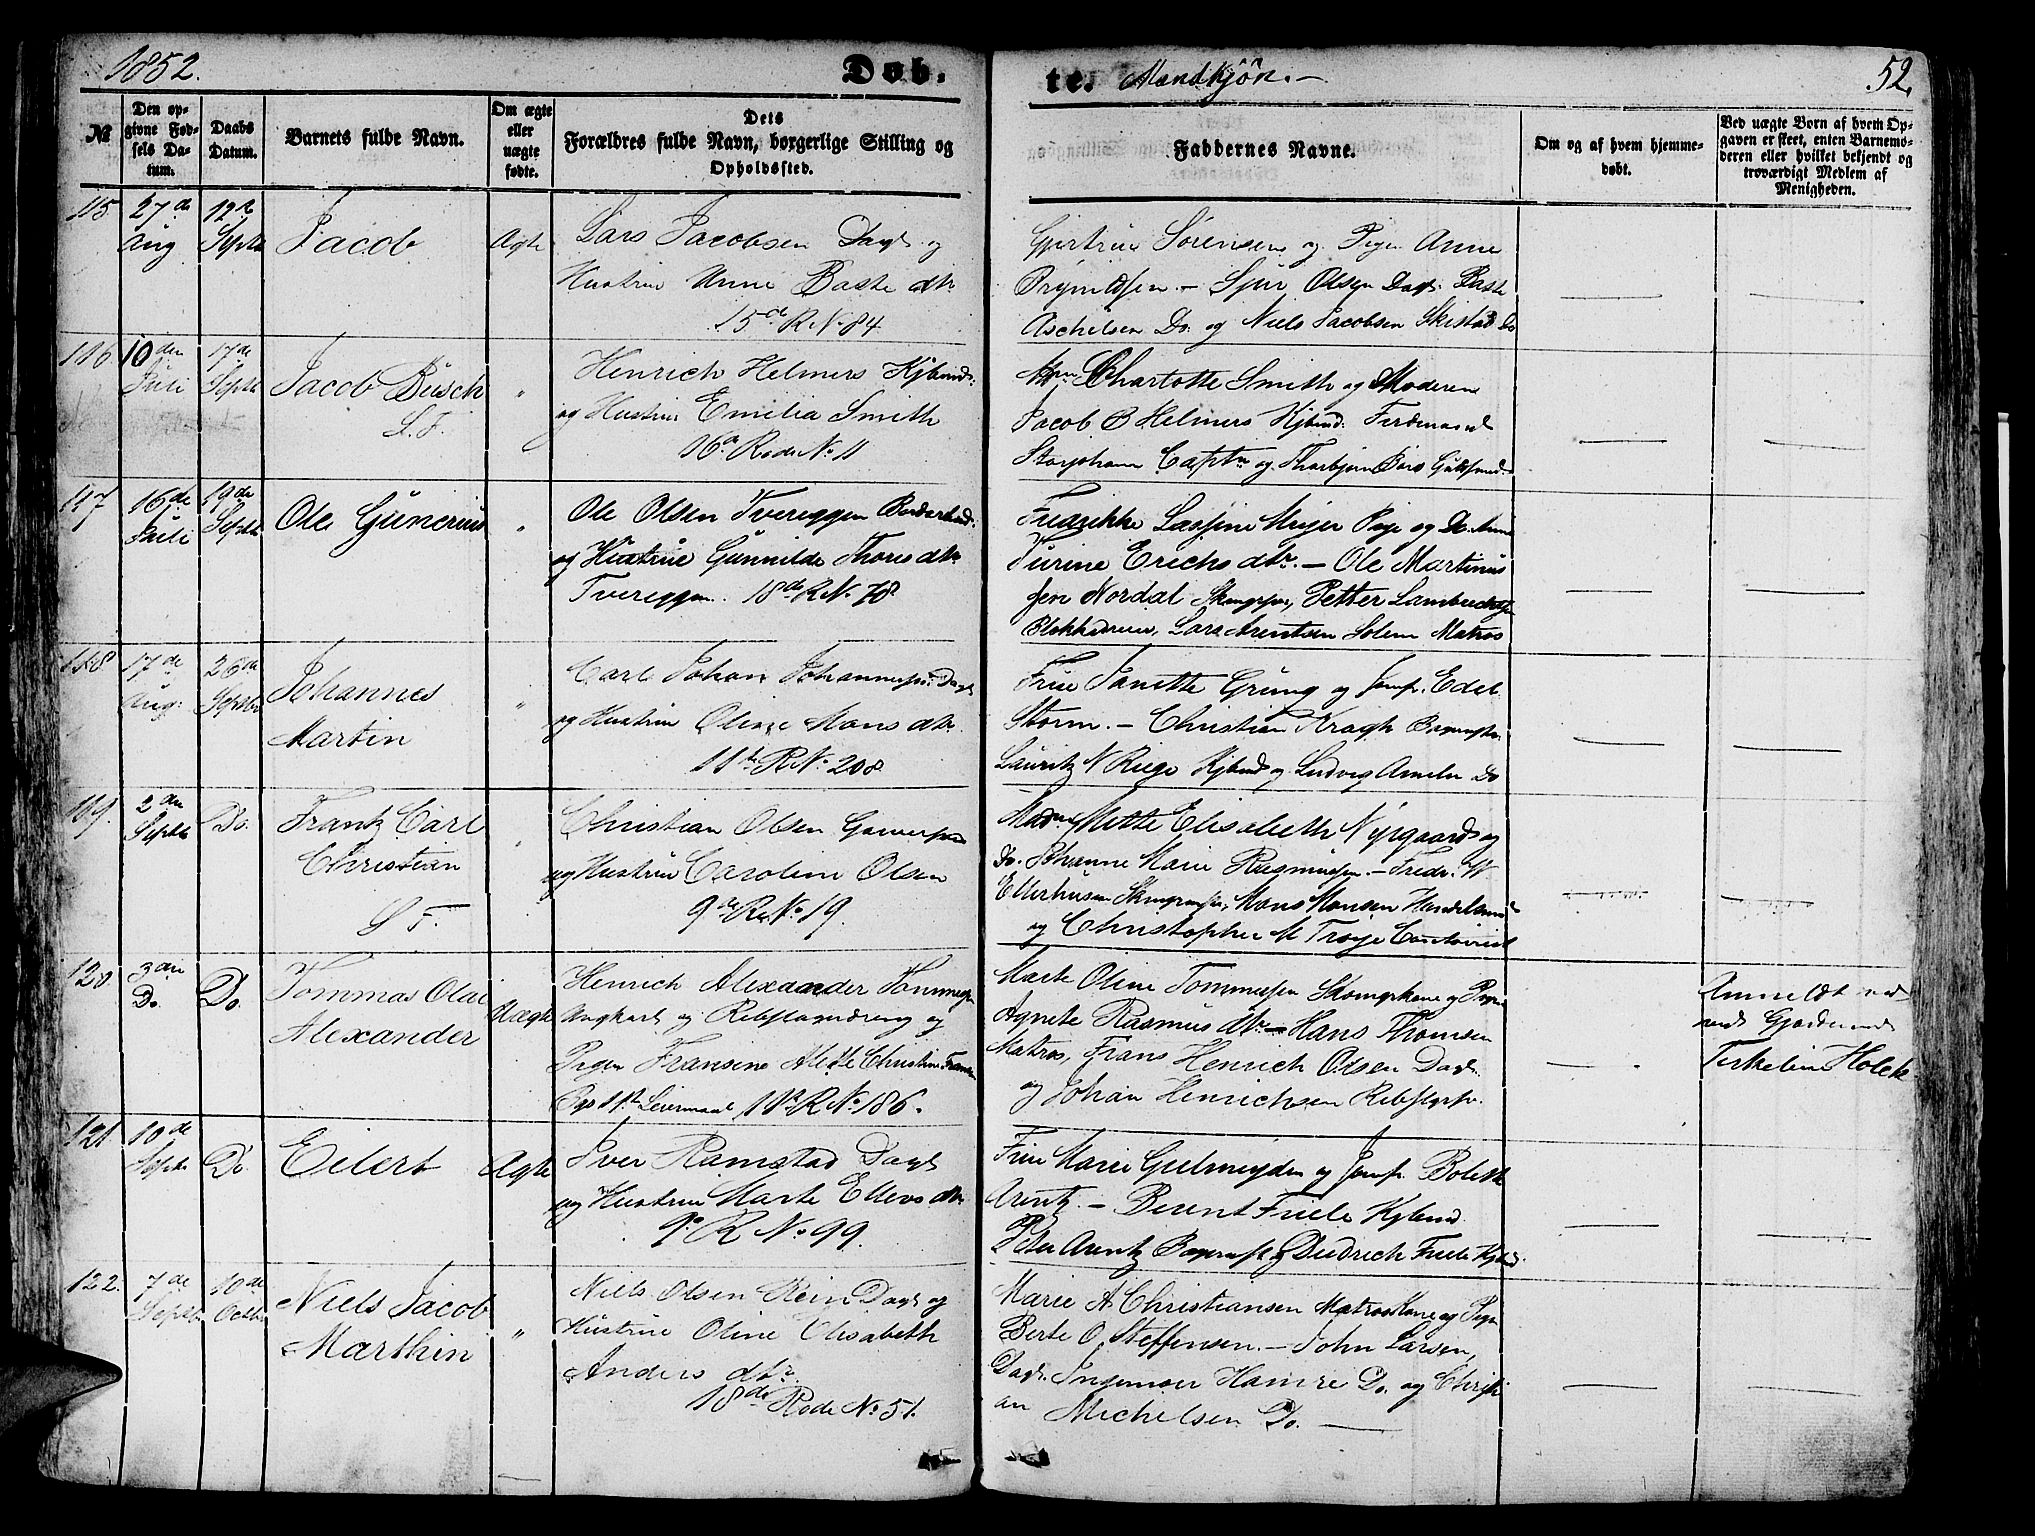 1852. Døb- te. Mandkjön.- 52.
№ Den opgivne Fødsels Datum. Daabs Datum. Barnets fulde Navn. Om ægte eller uægte fødte. Dets Forældres fulde Navn, borgerlige Stilling og Opholdssted. Faddernes Navne. Om og af hvem hjemmedøbt. Ved uægte Børn af hvem Opgaven er skeet, enten Barnemoderen eller hvilket bekjendt og troværdigt Medlem af Menigheden.
115. 27de Aug 12te Septb Jacob Ægte
Lars Jacobsen Dagk og
Hustrue Anne Baste dtr
15de R No 84
Sørensen og Pigen Anne
- Sjur Olsen Dagk. Baste
Aschelsen Do og Niels Jacobsen Skistad Do
116. 10den Juli 17de Septb Jacob Büsch S. F. "
Henrich Helmers Kjbmd:
og Hustrue Emilia Smith
16de Rode No 11
Charlotte Smith og Moderen
Jacob B Helmers Kjbmd: Ferdinand
Storjohann Captn og Thorbjørn
117. 16de Juli 19de Septb Ole Gunerius "
Ole Olsen Tvereggen
og Hustrue Gunnilde Thores dtr
Tvereggen. 18de R No 78
Fredrikke Meyer Pige og Do Anne
Turine Erichs dtr. - Ole Martinus
sen Nordal Petter Lambrechtsen
Lars Arentsen Solem Matros
118 17de Aug: 26de Septbr Johannes
Martin "
Carl Johan Johannessen Dagk
og Hustrue Oline Mons dtr
11te R No 208
Frue Janette Grung og Jomfr. Edel
Storm. - Christian Kragh
Lauritz N Riege Kjbmd og Ludvig Do
119. 2den Septbr Do. Frantz Carl
Christian
S F. "
Christian Olsen
og Hustrue Caroline Olsen
9de R No 19.
Mad. Mette Elisabeth Nyegaard og
Do. Johanne Marie Rasmussen. - Fredr. W
Ellerhusen Mons Monsen
og Christopher M Troye
120 3den Do. Do. Tommas Olai
Alexander Uægte
Henrich Alexander
Ungkarl og Rebslagerdreng og
Pigen Fransine Christine
11te R No 186.
Marte Oline Tommessen og Pigen
Agnete Rasmus dtr - Hans Thomsen
Matros, Frans Henrich Olsen Dagk.
og Johan Henrichsen
Anmeldt ved
Terkeline Holck
121 10de Septbr Do. Eilert Ægte
Iver Ramstad Dagk
og Hustrue Marte Ellevs dtr
9de R No 99.
Frue Marie Gjelmeyden og Jomfr. Bolette
Arentz. - Berent Friele Kjbmd.
Peter Arentz og Diedrich Friele Kjbmd.
122. 7de Septbr 10de Octbr Niels Jacob
Marthin "
Niels Olsen Rein Dagk og
Hustrue Oline Elisabeth
Anders dtr.
18de Rode No 51.
Marie A Christiansen Matroskone og Pigen
Berte O. Steffensen. - John Larsen,
Dagk. Ingemoer Hamre Do. og Christi
an Michelsen Do.